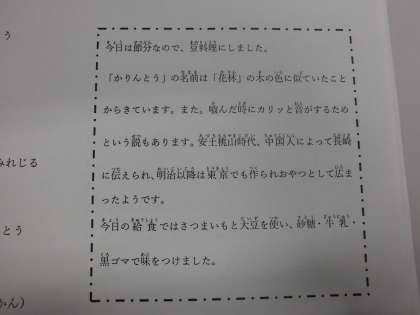 う
みれじる
とう
かん）
今日は節分なので、豆料理にしました。
「かりんとう」の名前は「花林」の木の色に似ていたこと
からきています。また、噛んだ時にカリッと音がするため
という説もあります。安土桃山時代、中国人によって長崎
に伝えられ、明治以降は東京でも作られおやつとして広ま
ったようです。
今日の給食ではさつまいもと大豆を使い、砂糖・牛乳・
黒ゴマで味をつけました。